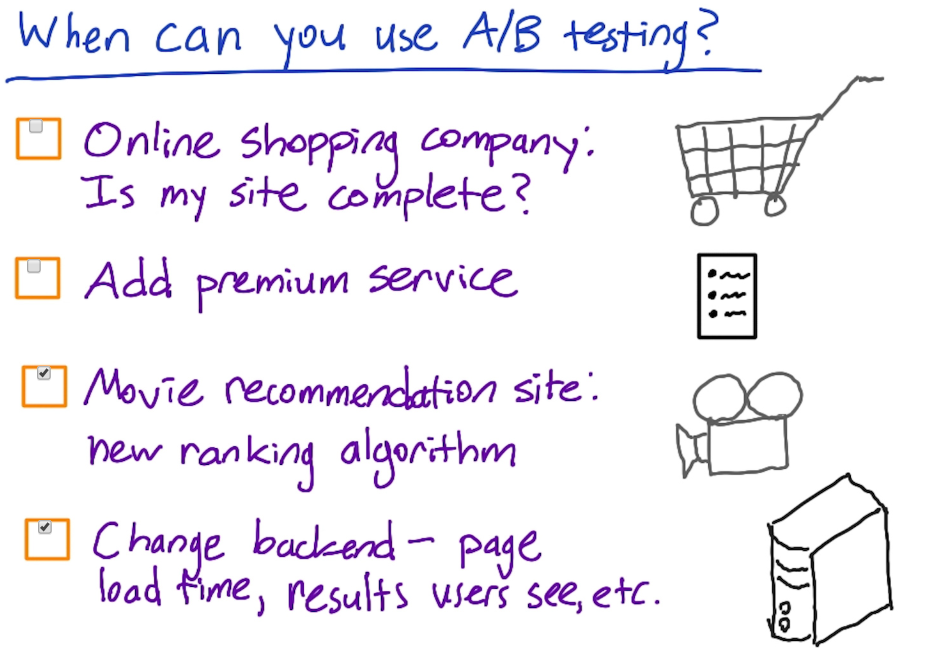 When can you use A/B testing?
Online shopping company:
Is my site complete?
Add premium service
Movie recommendation site:
new ranking algorithm
Change backend – page
load time, results users see, etc.